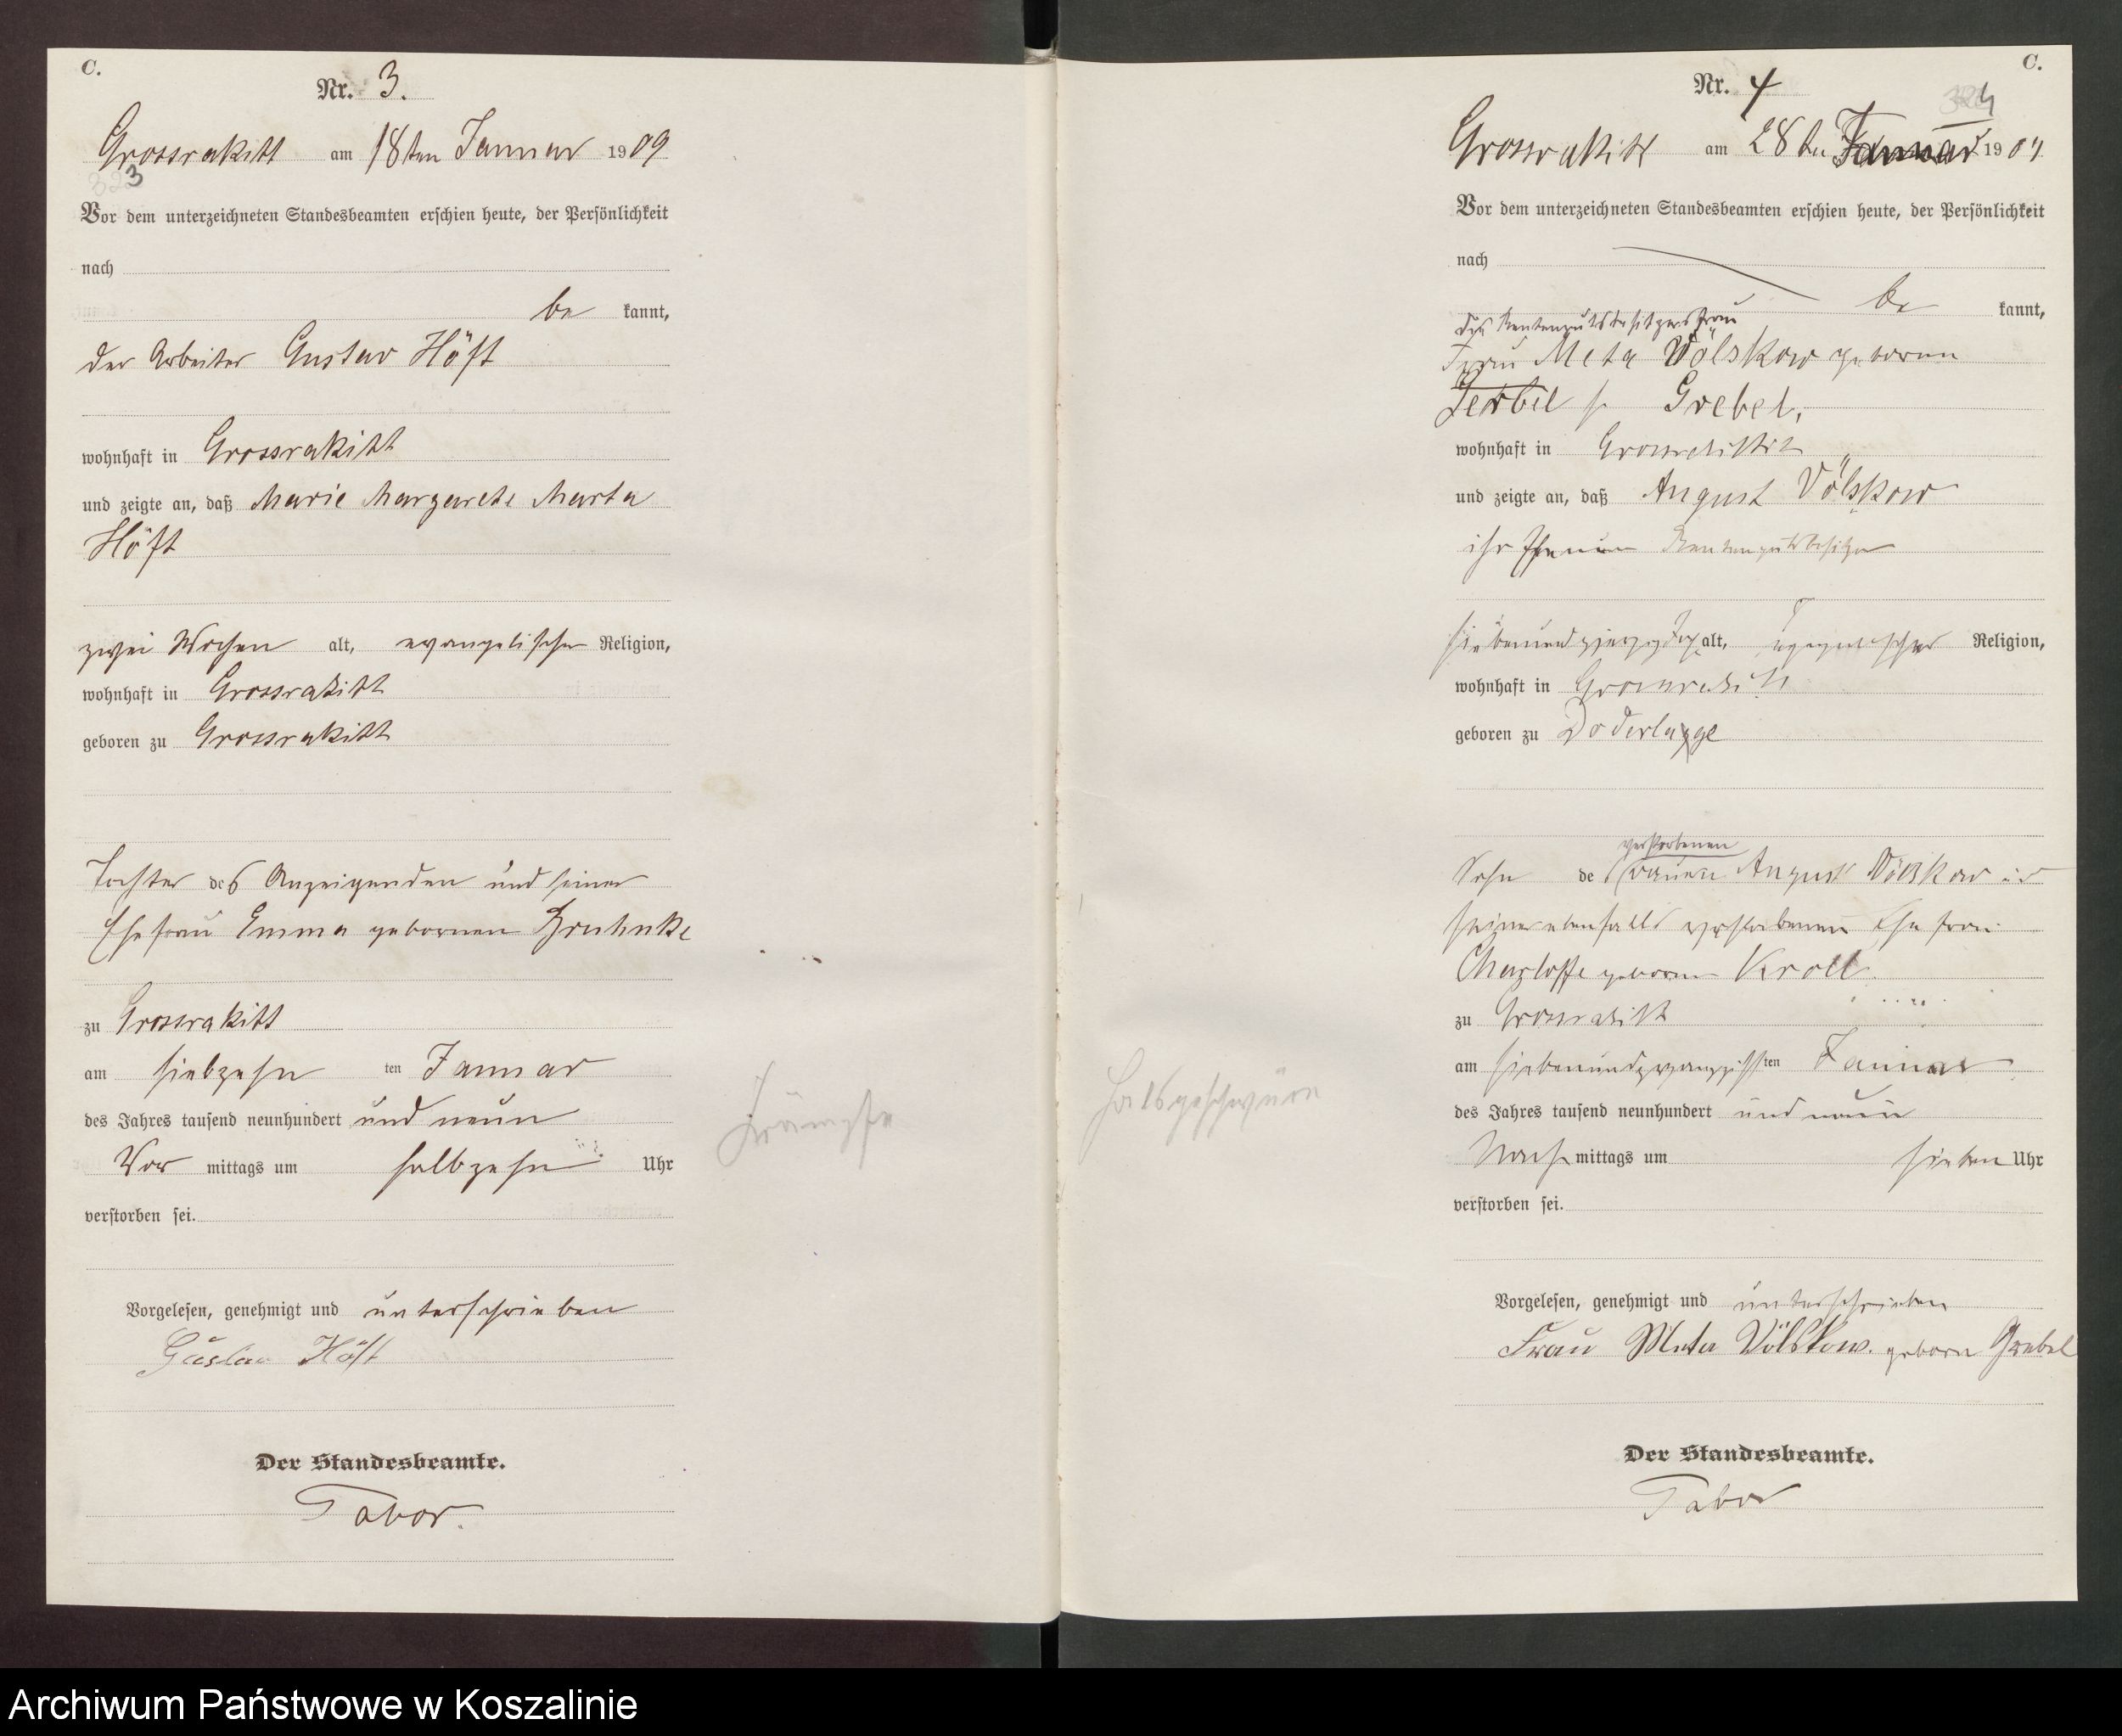 C.
Nr. 3.
Grossrakitt am 18ten Januar 1909
323
Vor dem unterzeichneten Standesbeamten erschien heute, der Persönlichkeit
nach
be kannt,
der Arbeiter Gustav Höft
wohnhaft in Grossrakitt
und zeigte an, daß Marie Margarete Marta
Höft
zwei Wochen alt, evangelischer Religion,
wohnhaft in Grossrakitt
geboren zu Grossrakitt
Tochter des Anzeigenden und seiner
Ehefrau Emma gebornen
zu Grossrakitt
am siebzehn ten Januar
des Jahres tausend neunhundert und neun
Vor mittags um halbzehn Uhr
verstorben sei.
Vorgelesen, genehmigt und unterschrieben
Gustav Höft
Der Standesbeamte.
Tabor.
Krämpfe
C.
Nr. 4
324
Grossrakitt am 28ten Januar 1909
Vor dem unterzeichneten Standesbeamten erschien heute, der Persönlichkeit
nach
be kannt,
des Rentengutsbesitzers Frau
Frau Meta Völskow geboren
Grebel,
wohnhaft in Grossrakitt
und zeigte an, daß August Völskow
ihr Ehemann Rentengutsbesitzer
alt, evangelischer Religion,
wohnhaft in Grossrakitt
geboren zu Doderlage
verstorbenen
Sohn des August Völskow
seiner ebenfalls verstorbenen Ehefrau
Charlotte geboren Kroll
zu Grossrakitt
am siebenundzwanzigsten Januar
des Jahres tausend neunhundert und neun
Nach mittags um sieben Uhr
verstorben sei.
Vorgelesen, genehmigt und unterschrieben
Frau Meta Völskow. geborn Grebel
Der Standesbeamte.
Tabor
Halsgeschwüre
Archiwum Państwowe w Koszalinie